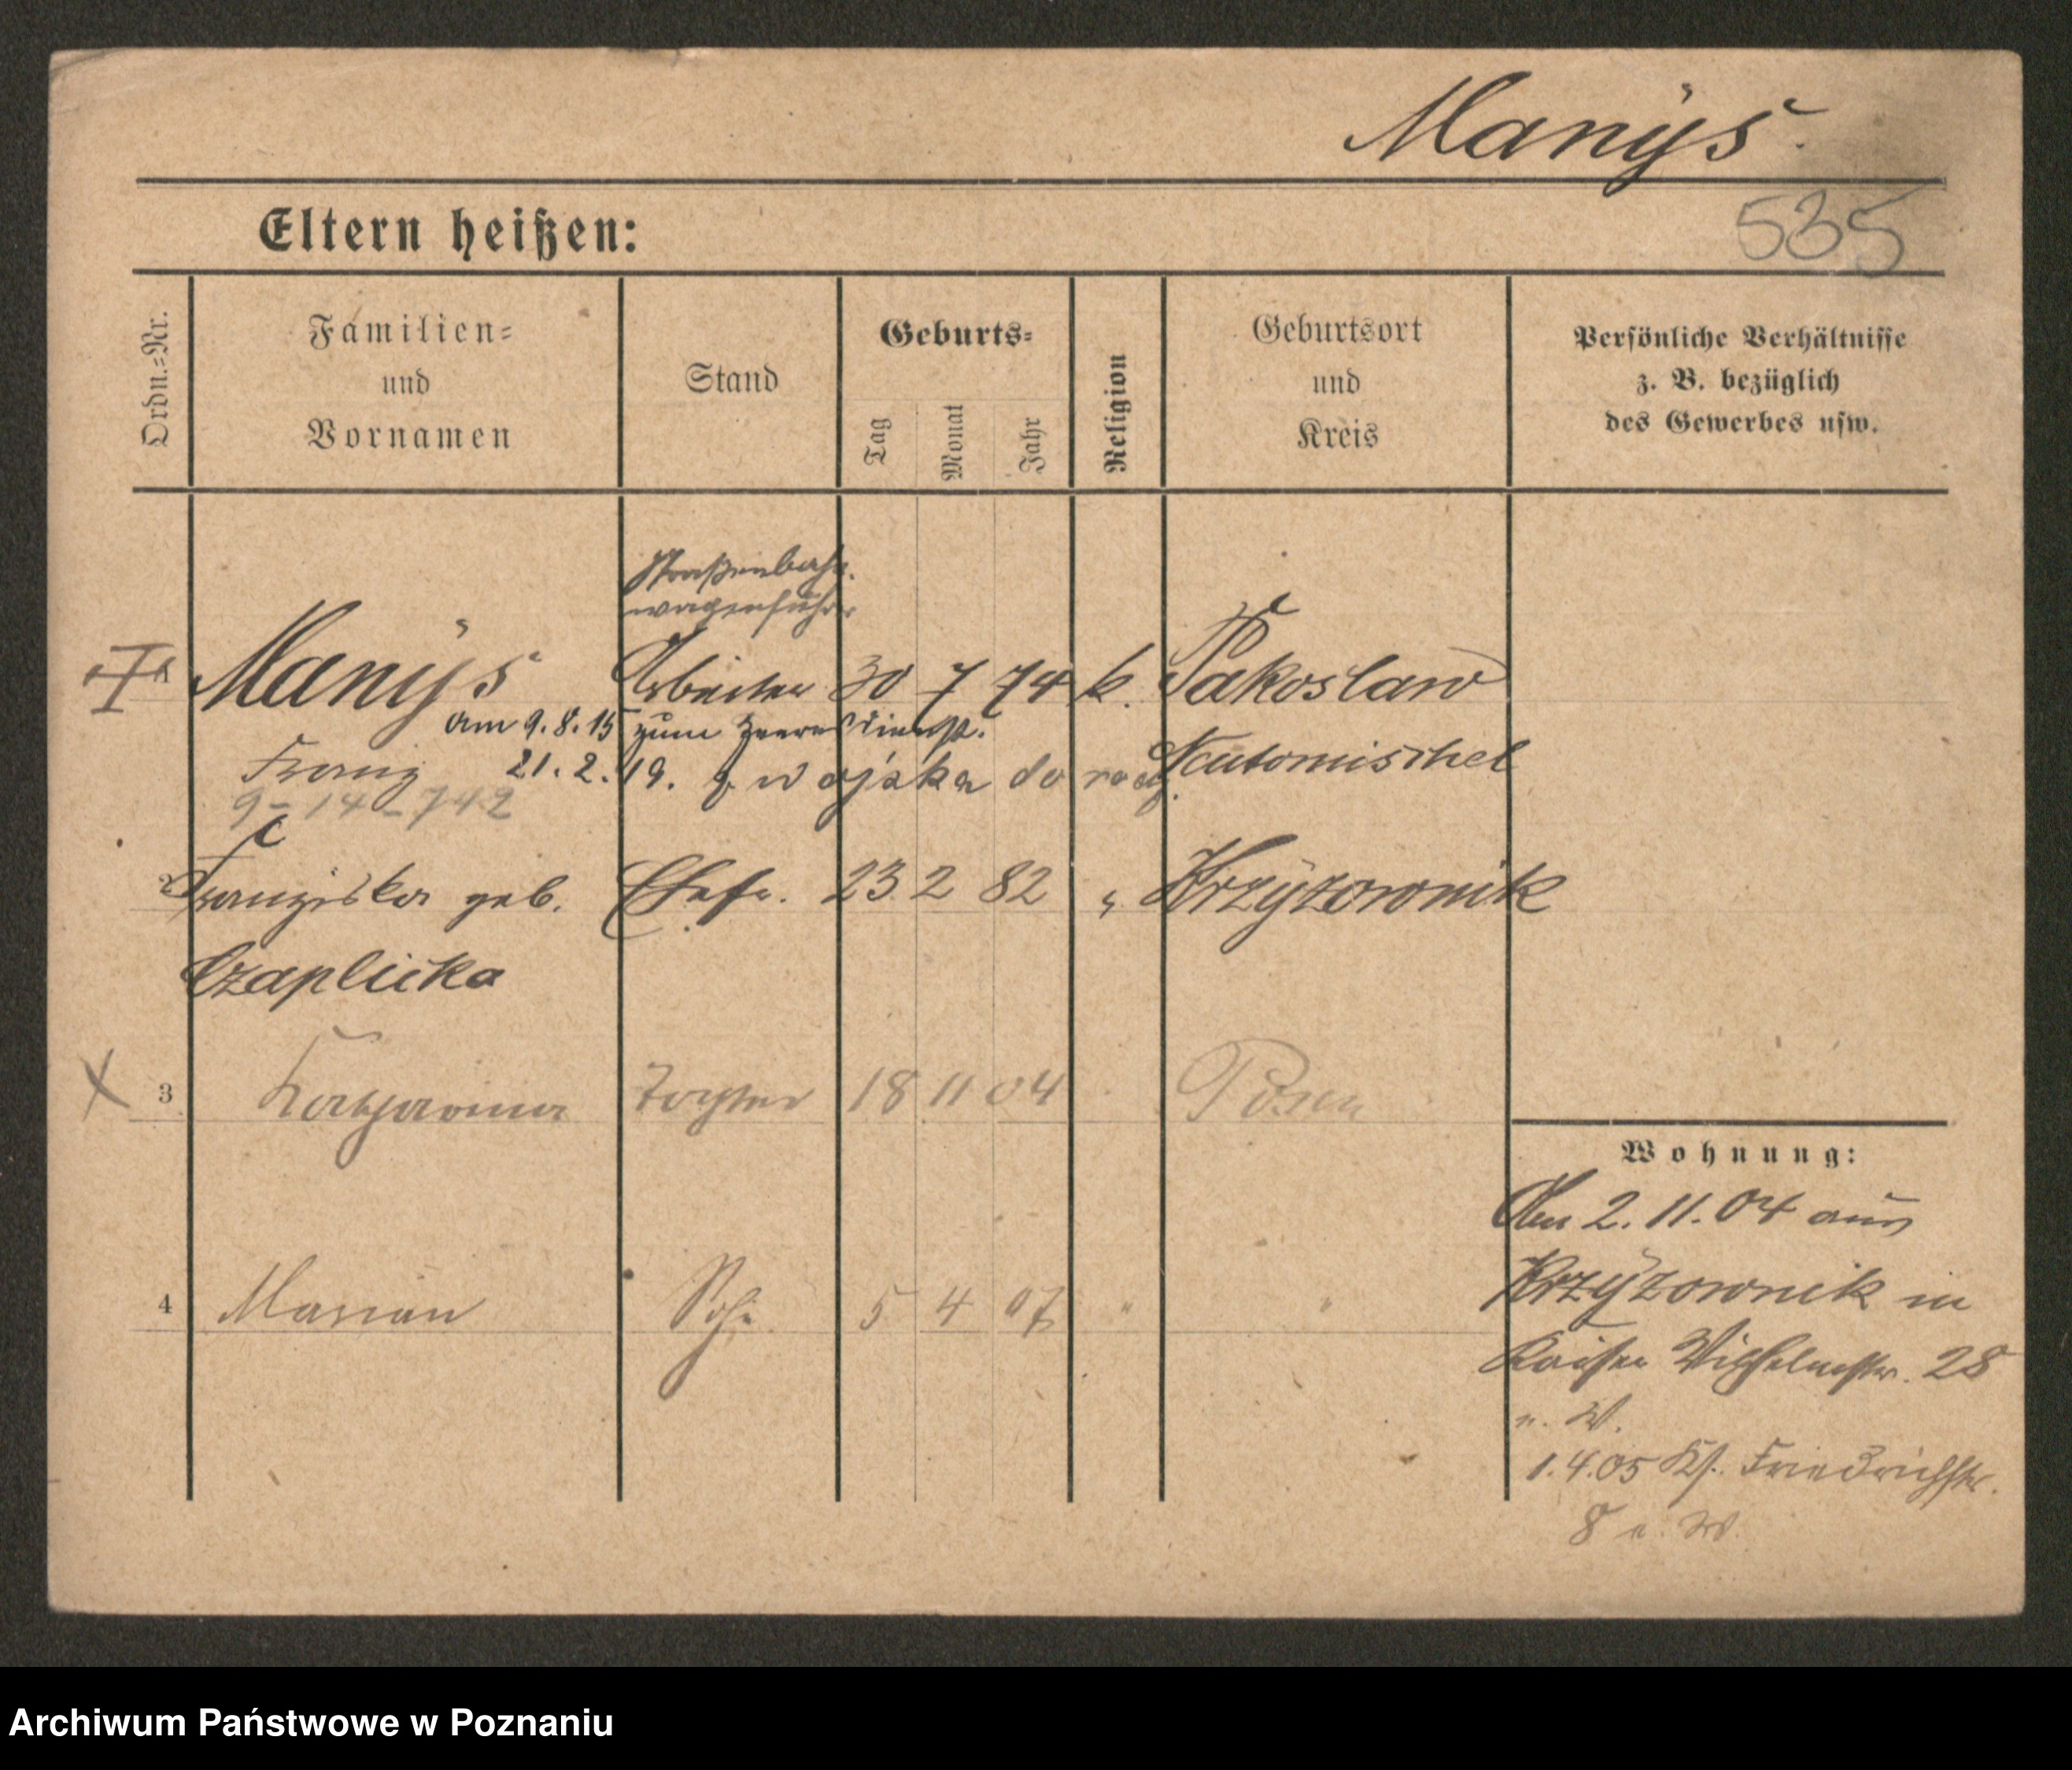 Manÿs.
535
Eltern heißen:
Ordn.=Nr.
Familien=
und
Vornamen
Stand
Geburts=
Tag
Monat
Jahr
Religion
Geburtsort
und
Kreis
Persönliche Verhältnisse
z. B. bezüglich
des Gewerbes usw.
Straßenbahn.
wagenführer
Manÿs Arbeiter 30 7 74 k. Pakoslaw
am 9. 8. 15 zum Heeresdienst.
Franz 21. 2. 19. z wojska do rodz. Neutomischel
9-14-742
2 Franziska geb. Ehefr. 23 2 82 " Krzÿzownik
Czaplicka
3 Katharina Tochter 18 11 04 Posen
Wohnung:
Am 2. 11. 04 aus
Krzÿzownik in
4 Marian Sohn 5 4 07 " "
Kaiser Wilhelmstr. 28
n. W.
1.4.05 Ks. Friedrichstr.
8 n. W.
Archiwum Państwowe w Poznaniu